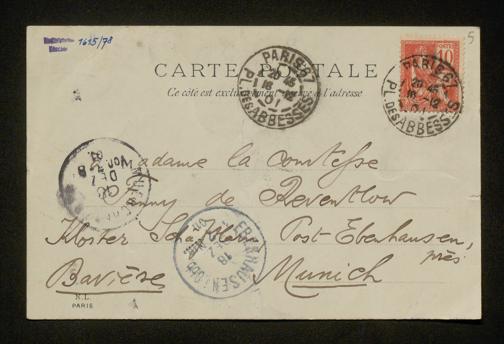 1615/78
5
CARTE POSTALE
Ce côté est exclusivement réservé à l'adresse
PARIS-57
20 45
16 -12
01
PL. DES ABBESSES
10
PARIS-57
20 45
16 -12
01
PL. DES ABBESSES
Madame la comtesse
Fanny de Reventlow
Kloster Schäftlarn Post-Ebenhausen,
près
Bavière Munich
EBENHAUSEN
18
DEZ
N.L.
PARIS